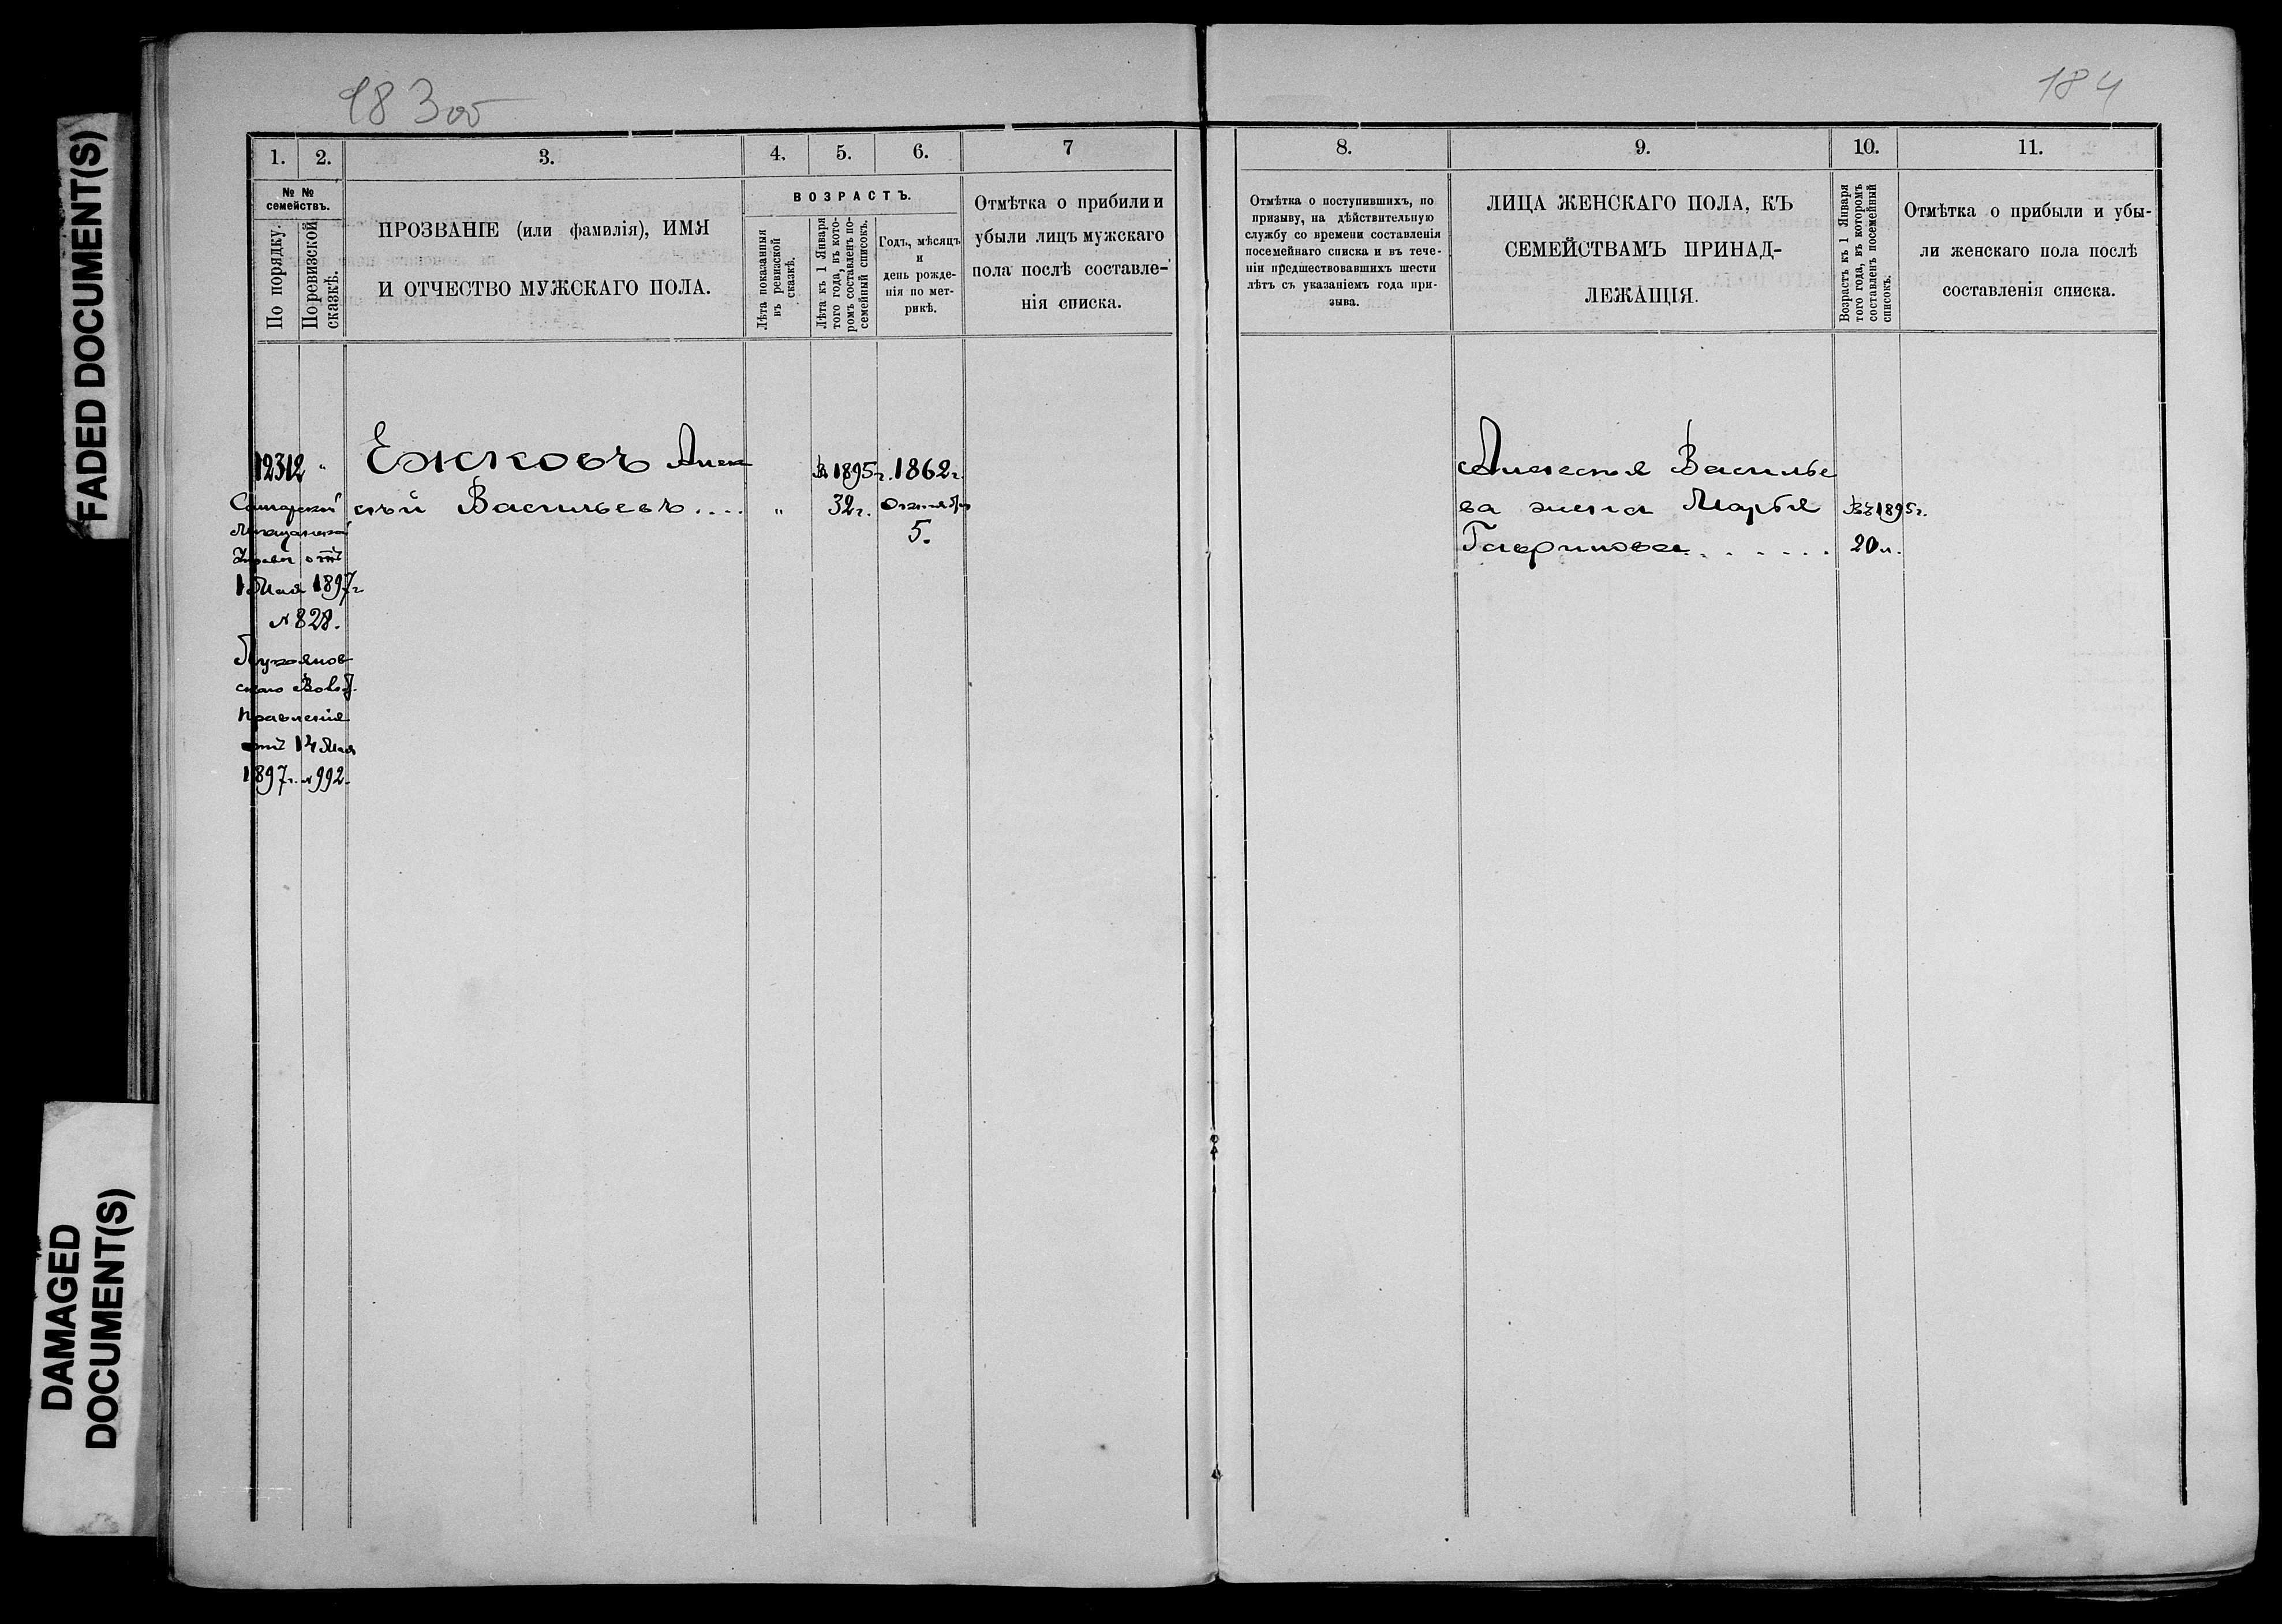 FADED DOCUMENT(S)
DAMAGED
DOCUMENT(S)
183 об
1. 2. 3. 4. 5. 6. 7
№ №
семействъ.
По порядку.
По ревизской
сказкѣ.
ПРОЗВАНІЕ (или фамилія), ИМЯ
И ОТЧЕСТВО МУЖСКАГО ПОЛА.
ВОЗРАСТЪ.
Лѣта показанныя
въ ревизской
сказкѣ.
Лѣта къ 1 Января
того года, въ кото-
ромъ составленъ по-
семейный списокъ.
Годъ, мѣсяцъ
и
день рожде-
нія по мет-
рикѣ.
Отмѣтка о прибыли и
убыли лицъ мужскаго
пола послѣ составле-
нія списка.
12312 " Ежковъ Алек
сѣй Васильевъ....
" Въ 1895г. 1862г.
32г. Октября
5.
Самарской
Мѣщанской
Управы отъ
1 Мая 1897г
№ 828.
Лукьянов
скаго Волос.
Правленія
отъ 14 Мая
1897г. № 992.
184
8. 9. 10. 11.
Отмѣтка о поступившихъ, по
призыву, на дѣйствительную
службу со времени составленія
посемейнаго списка и въ тече-
ніи предшествовавшихъ шести
лѣтъ съ указаніемъ года при-
зыва.
ЛИЦА ЖЕНСКАГО ПОЛА, КЪ
СЕМЕЙСТВАМЪ ПРИНАД-
ЛЕЖАЩІЯ.
Возрастъ къ 1 Января
того года, въ которомъ
составленъ посемейный
списокъ.
Отмѣтка о прибыли и убы-
ли женскаго пола послѣ
составленія списка.
Алексея Василье
ва жена Марья Въ 1895г.
Гавриловa....... 20 л.